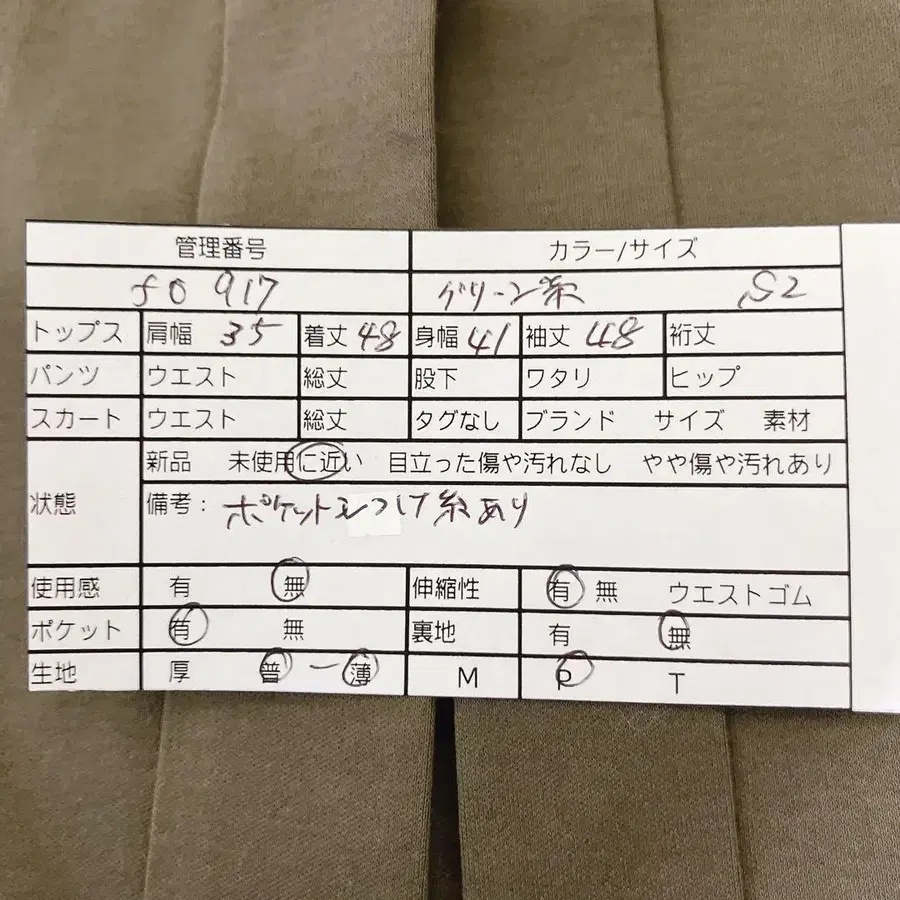 管理番号 カラー/サイズ
fo 917 グリーン系 S2
トップス 肩幅 35 着丈 48 身幅 41 袖丈 48 裄丈
パンツ ウエスト 総丈 股下 ワタリ ヒップ
スカート ウエスト 総丈 タグなし ブランド サイズ 素材
新品 未使用に近い 目立った傷や汚れなし やや傷や汚れあり
状態 備考： ポケットしつけ糸あり
使用感 有 無 伸縮性 有 無 ウエストゴム
ポケット 有 無 裏地 有 無
生地 厚 普 ー 薄 M P T